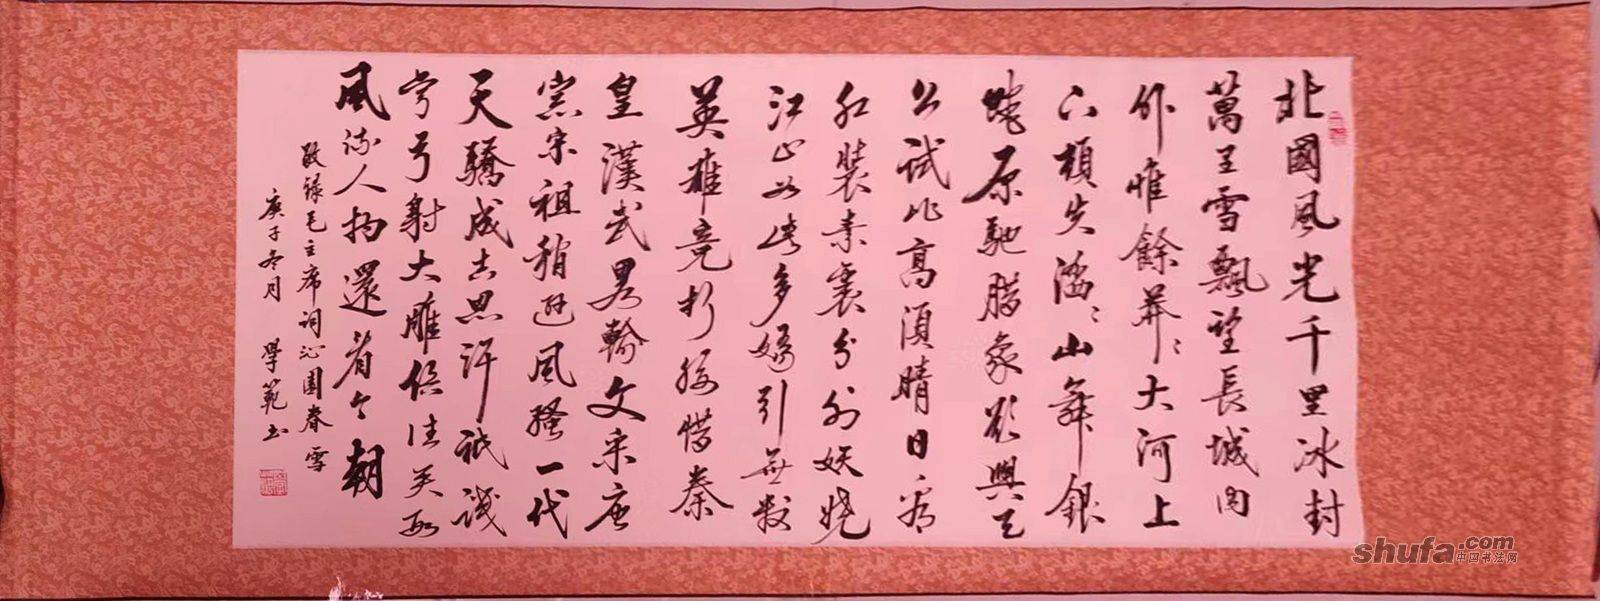 北國風光千里冰封
萬里雪飄望長城內
外惟餘莽〻大河上
下頓失滔〻山舞銀
蛇原馳臘象欲與天
公試比高須晴日看
紅裝素裹分外妖嬈
江山如此多嬌引無數
英雄競折腰惜秦
皇漢武畧輸文采唐
宗宋祖稍遜風騷一代
天驕成吉思汗祇識
彎弓射大雕俱往矣數
風流人物還看今朝
敬錄毛主席詞沁園春雪
庚子冬月 學範书
shufa.com
中国书法网